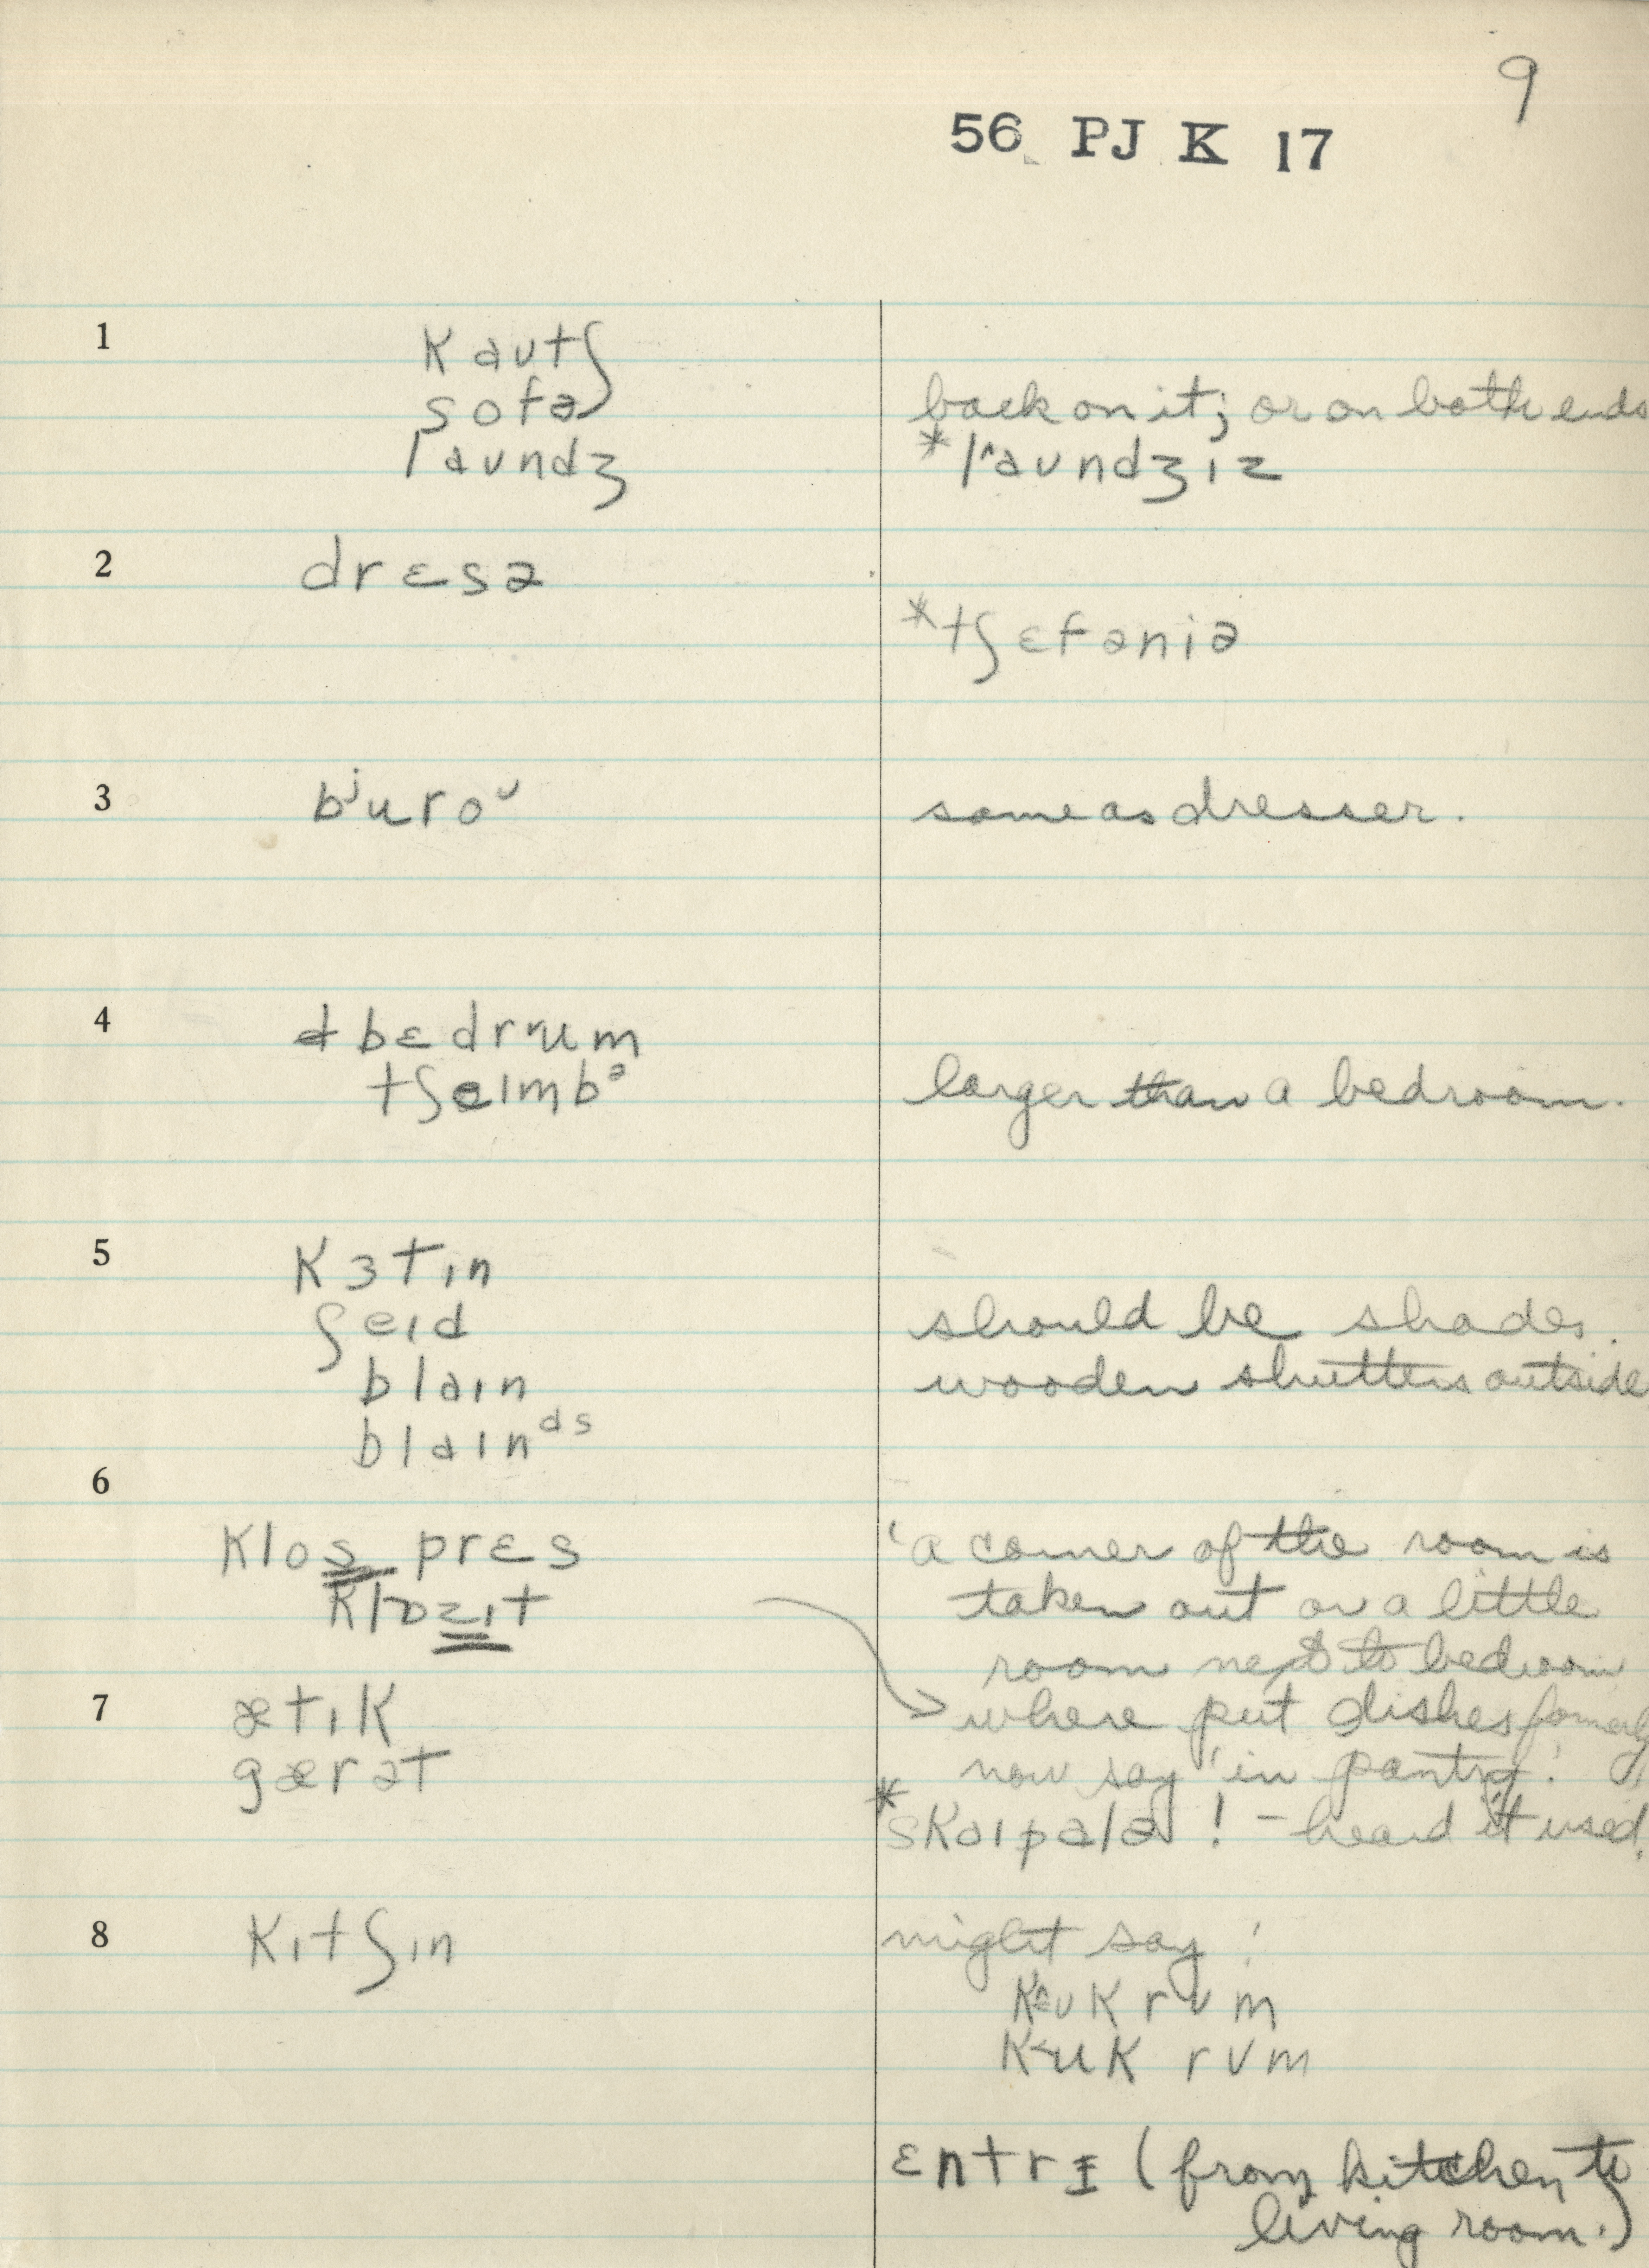 9
56 PJ K 17
1
kautʃ
sofə
laundʒ
back on it; or on both ends
*l^aundʒɪz
2
drɛsə
*tʃɛfəniə
3
bʲuroᶸ
same as dresser.
4
bɛdrum
tʃeɪmbᵊ
larger than a bedroom.
5
kɜtɪn
ʃeɪd
should be shades.
blaɪn
wooden shutters outside
blaɪnᵈˢ
6
klos pres
klɒzɪt
'a corner of the room is
taken out or a little
room next to bedroom
7
ætɪk
gærət
where put dishes formerly
now say 'in pantry'.
*skɔɪpələ! – heard it used.
8
kɪtʃɪn
might say:
kʊk rʊm
kuk rʊm
ɛntrɪ (from kitchen to
living room.)